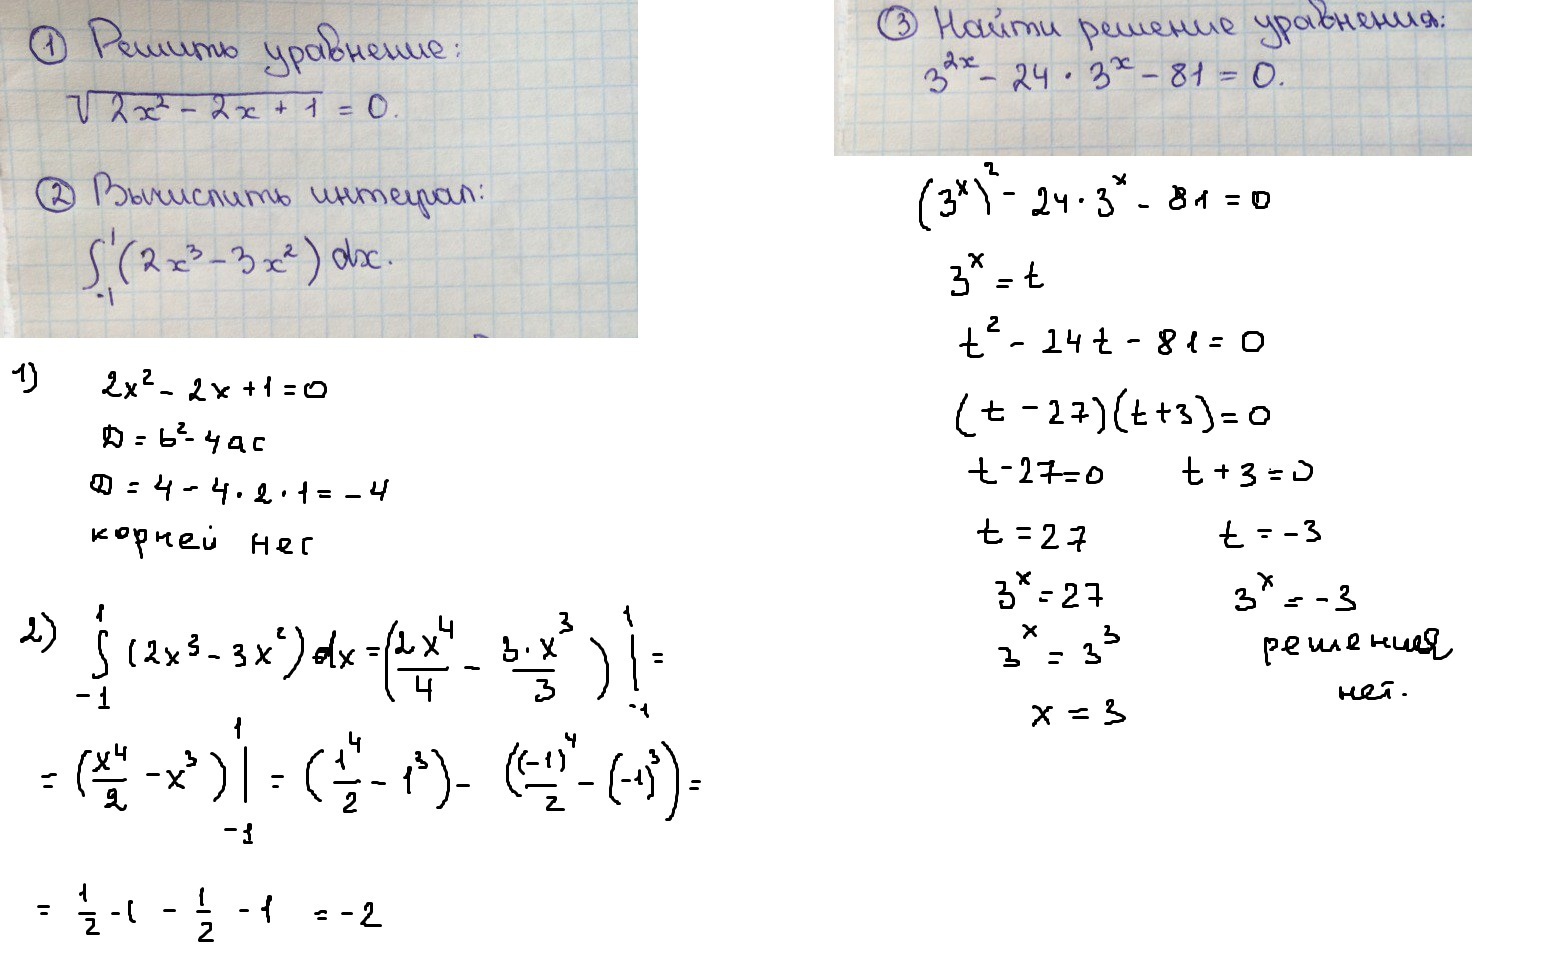 ① Решить уравнение:
√2x² - 2x + 1 = 0.
② Вычислить интеграл:
∫₋₁¹ (2x³ - 3x²) dx.
1) 2x² - 2x + 1 = 0
D = b² - 4ac
D = 4 - 4 · 2 · 1 = -4
корней нет
2) ∫₋₁¹ (2x³ - 3x²) dx = (2x⁴/4 - 3·x³/3) |₋₁¹ =
= (x⁴/2 - x³) |₋₁¹ = (1⁴/2 - 1³) - ((-1)⁴/2 - (-1)³) =
= 1/2 - 1 - 1/2 - 1 = -2
③ Найти решение уравнения:
3²ˣ - 24 · 3ˣ - 81 = 0.
(3ˣ)² - 24 · 3ˣ - 81 = 0
3ˣ = t
t² - 24t - 81 = 0
(t - 27)(t + 3) = 0
t - 27 = 0 t + 3 = 0
t = 27 t = -3
3ˣ = 27 3ˣ = -3
3ˣ = 3³ решения
x = 3 нет.